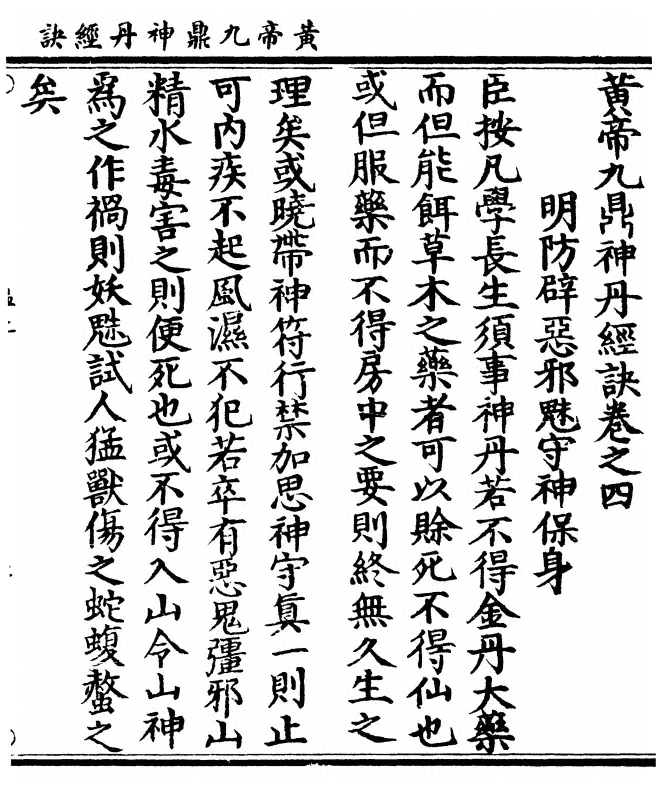 黃帝九鼎神丹經訣
黃帝九鼎神丹經訣卷之四
明防辟惡邪魅守神保身
臣按凡學長生須事神丹若不得金丹大藥
而但能餌草木之藥者可以賒死不得仙也
或但服藥而不得房中之要則終無久生之
理矣或曉帶神符行禁加思神守真一則止
可內疾不起風濕不犯若卒有惡鬼彊邪山
精水毒害之則便死也或不得入山令山神
爲之作禍則妖魅試人猛獸傷之蛇蝮螫之
矣